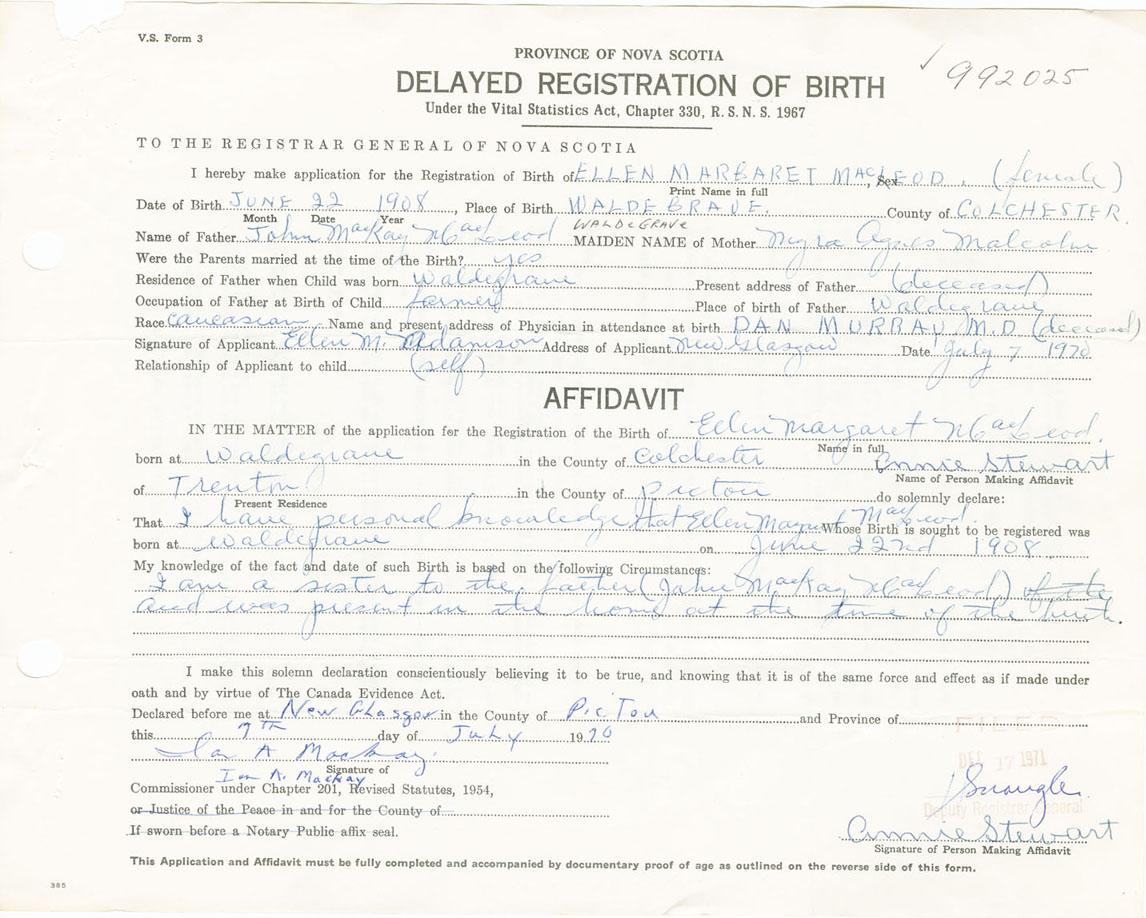 V.S. Form 3
PROVINCE OF NOVA SCOTIA
✓ 992025
DELAYED REGISTRATION OF BIRTH
Under the Vital Statistics Act, Chapter 330, R. S. N. S. 1967
TO THE REGISTRAR GENERAL OF NOVA SCOTIA
I hereby make application for the Registration of Birth of ELLEN MARGARET MacLEOD, Sex (female)
Print Name in full
Date of Birth JUNE 22 1908, Place of Birth WALDEGRAVE. County of COLCHESTER.
Month Date Year WALDEGRAVE
Name of Father John MacKay MacLeod MAIDEN NAME of Mother Myra Agnes Malcolm
Were the Parents married at the time of the Birth? yes
Residence of Father when Child was born Waldegrave Present address of Father (deceased)
Occupation of Father at Birth of Child farmer Place of birth of Father Waldegrave
Race caucasian Name and present address of Physician in attendance at birth DAN MURRAY M.D (deceased)
Signature of Applicant Ellen M. Adamson Address of Applicant New Glasgow Date July 7 1970
Relationship of Applicant to child (self)
AFFIDAVIT
IN THE MATTER of the application for the Registration of the Birth of Ellen Margaret MacLeod.
Name in full
born at Waldegrave in the County of Colchester Annie Stewart
Name of Person Making Affidavit
of Trenton in the County of Pictou do solemnly declare:
Present Residence
That I have personal knowledge that Ellen Margaret MacLeod. Whose Birth is sought to be registered was
born at Waldegrave on June 22nd 1908
My knowledge of the fact and date of such Birth is based on the following Circumstances:
I am a sister to the father (John MacKay MacLeod) of the
and was present in the home at the time of the birth.
I make this solemn declaration conscientiously believing it to be true, and knowing that it is of the same force and effect as if made under
oath and by virtue of The Canada Evidence Act.
Declared before me at New Glasgow in the County of Pictou and Province of
this 7th day of July 1970
FILED
Ian A Mackay.
DEC 17 1971
Signature of
Ian A. Mackay
Commissioner under Chapter 201, Revised Statutes, 1954,
or Justice of the Peace in and for the County of
Deputy Registrar General
If sworn before a Notary Public affix seal.
Annie Stewart
Signature of Person Making Affidavit
This Application and Affidavit must be fully completed and accompanied by documentary proof of age as outlined on the reverse side of this form.
385